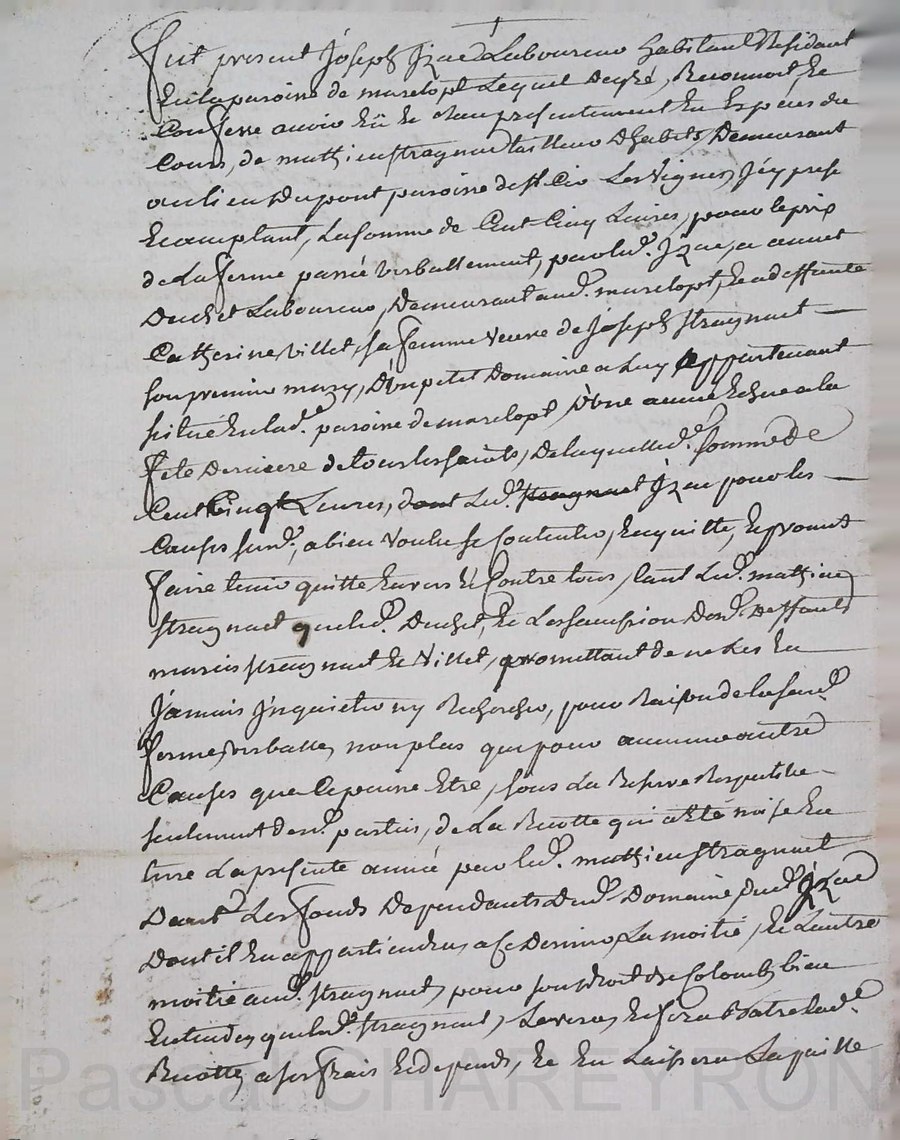 Fut present Joseph Izac Laboureur habitant & Residant
En la paroisse de marclopt Lequel De gré, Reconnoit Et
Confesse avoir Eü Et Reçu presentement En Espèces du
Cours, de mathieu stragnat tailleur D'habits, Demeurant
au lieu Dupont paroisse de st Cir Les Vignes, Jcy present
Et acceptant, La somme de Cent Cinq Livres, pour le prix
de La ferme passée verballement, par led. Izac, a
Duchet Laboureur, Demeurant aud. marclopt, Et a deffunte
Catherine Villet, sa femme veuve de Joseph stragnat
son premier mary, D'un petit Domaine a Luy appartenant
situé En lad. paroisse de marclopt, D'une année Echue a la
fete Derniere de tous les saints, De laquelle d. somme de
Cent Cinq Livres, dont Led. stragnat Izac pour les
Causes susd. a bien voulu se Contenter, En quitte, Et promet
faire tenir quitte Envers Et Contre tous, tant Led. mathieu
stragnat que led. Duchet, Et Les
mariés stragnat Et Villet, promettant de ne Les En
Jamais Jnquieter ny Rechercher, pour Raison de la susd.
ferme verballe, non plus que pour aucune autre
Causes que Ce puisse Etre, sous La Reserve Respective
seulement desd. parties, de La Recolte qui a Eté mise En
terre La presente année par led. mathieu stragnat
Dans Les fonds Dependants Dud. Domaine Dud. Izac
Dont il En appartiendra a Ce Dernier La moitié, Et L'autre
moitié aud. stragnat, pour son droit de Colon, bien
Entendu que led. stragnat, Levera, Et fera Batre lad.
Recolte a ses frais Et depends, Et En Laissera La paille
Pascal CHAREYRON